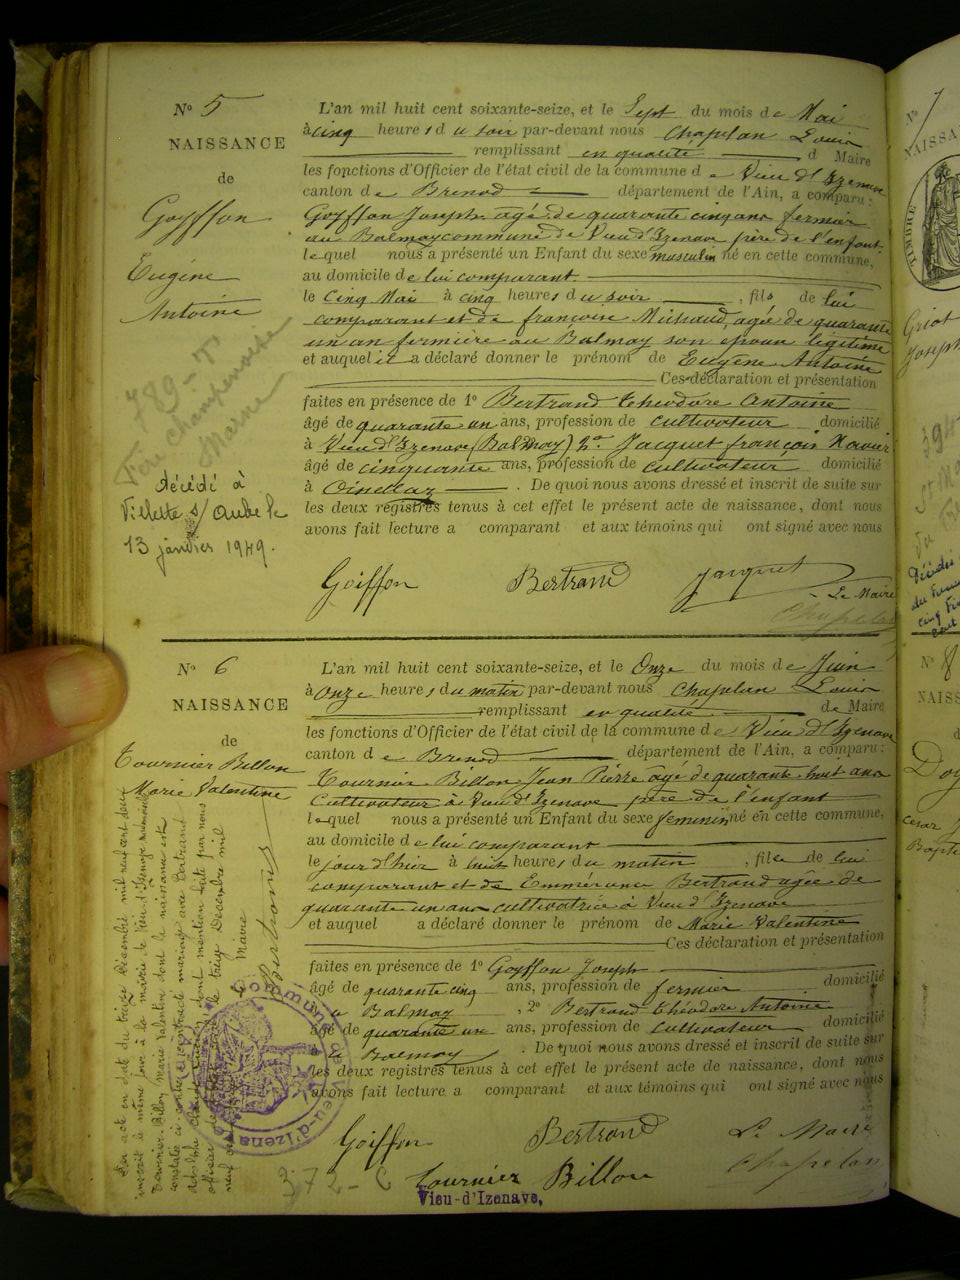 N° 5
NAISSANCE
de
Goyffon
Eugéne
Antoine
789-T
champenoise
Marne
décédé à
Villette s/ Aube le
13 janvier 1949.
L'an mil huit cent soixante-seize, et le Sept du mois de Mai
à cinq heures du soir par-devant nous Chapelan Louis
remplissant en qualité d Maire
les fonctions d'Officier de l'état civil de la commune de Vieu d'Izenave
canton de Brenod département de l'Ain, a comparu :
Goyffon Joseph agé de quarante cinq ans fermier
au Balmay commune de Vieu d'Izenave père de l'enfant
lequel nous a présenté un Enfant du sexe masculin né en cette commune,
au domicile de lui comparant
le Cinq Mai à cinq heures du soir , fils de lui
comparant et de françoise Michaud, agée de quarante
un an fermière au Balmay son épouse légitime
et auquel il a déclaré donner le prénom de Eugène Antoine
Ces déclaration et présentation
faites en présence de 1° Bertrand théodore Antoine
âgé de quarante un ans, profession de cultivateur domicilié
à Vieu d'Izenave (Balmay) 2° Jacquet françois Xavier
âgé de cinquante ans, profession de cultivateur domicilié
à Oisellaz . De quoi nous avons dressé et inscrit de suite sur
les deux registres tenus à cet effet le présent acte de naissance, dont nous
avons fait lecture a comparant et aux témoins qui ont signé avec nous
Goiffon Bertrand Jacquet
Le Maire
Chapelan
N° 6
NAISSANCE
de
Tournier Billon
Marie Valentine
L'an mil huit cent soixante-seize, et le Onze du mois de Juin
à Onze heures du matin par-devant nous Chapelan Louis
remplissant en qualité de Maire
les fonctions d'Officier de l'état civil de la commune de Vieu d'Izenave
canton de Brenod département de l'Ain, a comparu :
Tournier Billon Jean Pierre agé de quarante huit ans
Cultivateur à Vieu d'Izenave père de l'enfant
lequel nous a présenté un Enfant du sexe feminin né en cette commune,
au domicile de lui comparant
le jour d'hier à huit heures du matin , fille de lui
comparant et de Emmérance Bertrand agée de
quarante un ans cultivatrice à Vieu d'Izenave
et auquel a déclaré donner le prénom de Marie Valentine
Ces déclaration et présentation
faites en présence de 1° Goyffon Joseph
âgé de quarante cinq ans, profession de fermier domicilié
au Balmay , 2° Bertrand théodore Antoine
âgé de quarante un ans, profession de Cultivateur domicilié
à Balmay . De quoi nous avons dressé et inscrit de suite sur
les deux registres tenus à cet effet le présent acte de naissance, dont nous
avons fait lecture a comparant et aux témoins qui ont signé avec nous
Goiffon Bertrand Le Maire
Tournier Billon Chapelan
Vieu-d'Izenave.
Par acte en date du treize Décembre mil neuf cent deux
inscrit le même jour à la mairie de Vieu d'Izenave
Tournier-Billon Marie Valentine dont la naissance est
constatée ci-contre, a contracté mariage avec Bertrand
dont mention faite par nous
officier de le treize Décembre mil
neuf cent
Maire
Bertrand
Commune de Vieu-d'Izenave
372-C
N° 7
NAISSA
TIMBRE
Griot
Joseph
N° 8
NAISS
d
César